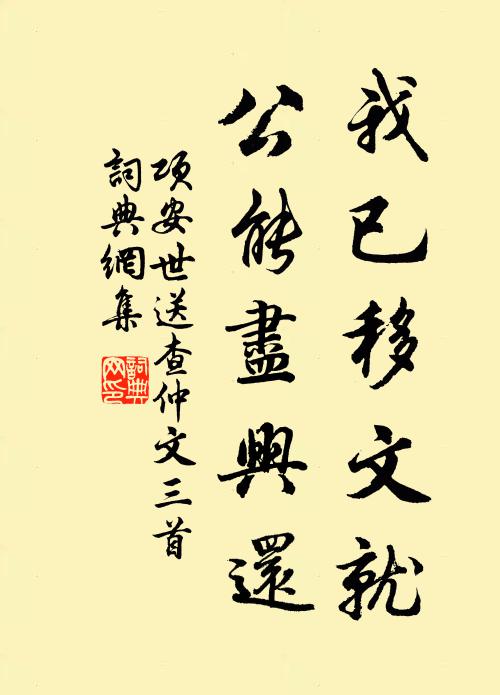 我已移文就
公能盡興還
項安世送查仲文三首
詞典網集
詞典網印